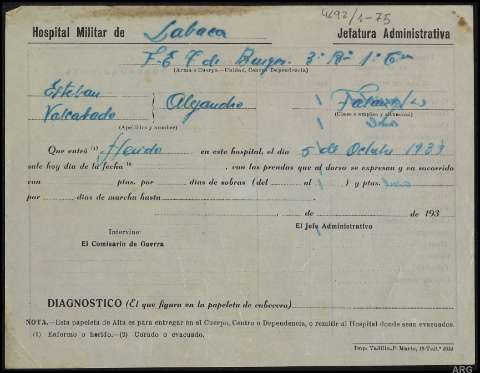 4692/1-75
Hospital Militar de Labaca Jefatura Administrativa
F.E.T de Burgos. 3ª Bª 1ª Cia
(Arma o Cuerpo.—Unidad, Centro Dependencia)
Esteban Alejandro
Valcabado (Clase o empleo y situación)
(Apellidos y nombre)
Que entró (1) Herido en este hospital, el día 5 de Octubre 1937
sale hoy día de la fecha (2), con las prendas que al dorso se expresan y va socorrido
con ptas. por días de sobras (del al ) y ptas.
por días de marcha hasta
de de 193
Intervine: El Jefe Administrativo
El Comisario de Guerra
DIAGNOSTICO (El que figura en la papeleta de cabecera)
NOTA.—Esta papeleta de Alta es para entregar en el Cuerpo, Centro o Dependencia, o remitir al Hospital donde sean evacuados.
(1) Enfermo o herido.—(2) Curado o evacuado.
Imp. Vadillo.
ARG